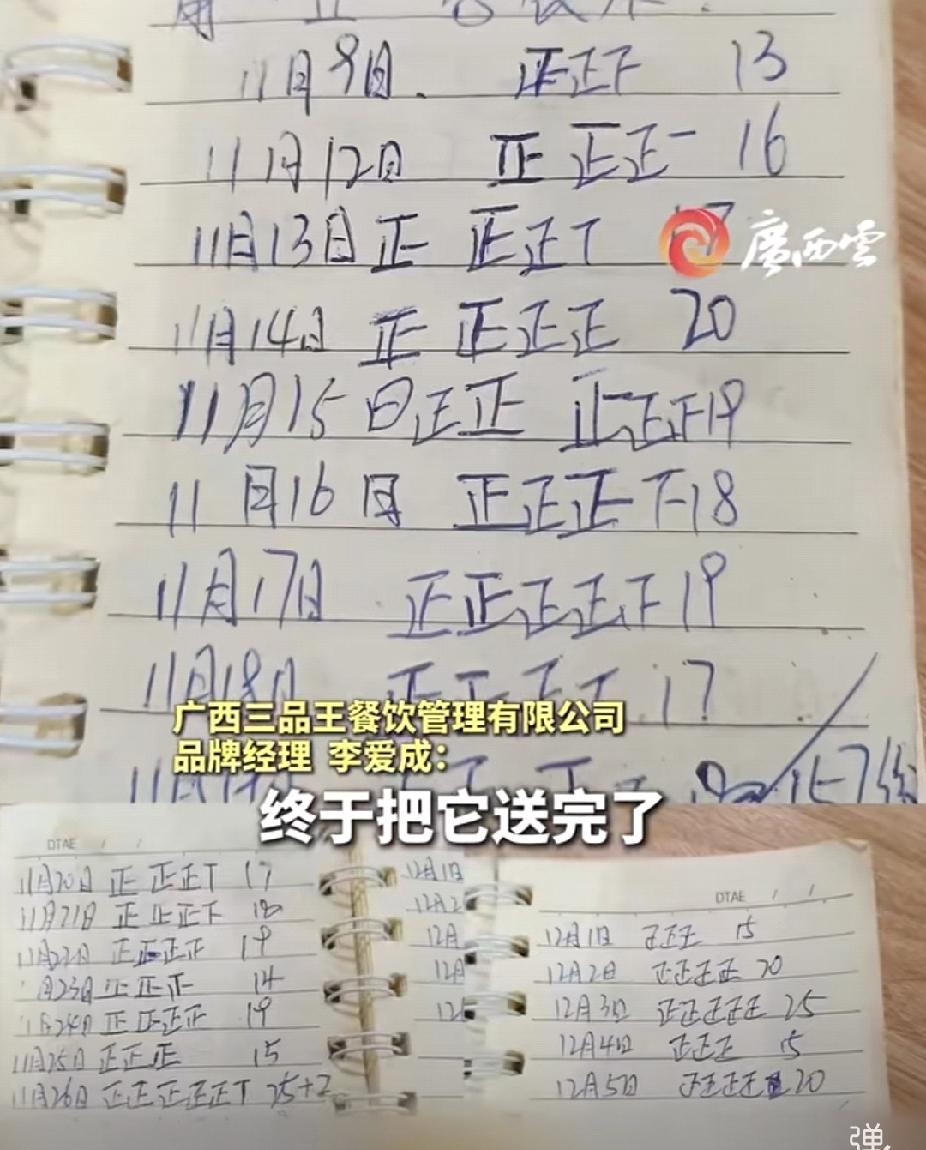 11月9日. 正正下 13
11月12日 正 正正一 16
11月13日 正 正正T 17
廣西雲
11月14日 正 正正正 20
11月15日 正正 正正正 19
11月16日 正正正下 18
11月17日 正正正正下 19
11月18日 17
广西三品王餐饮管理有限公司
品牌经理 李爱成：
终于把它送完了
DTAE / /
11月20日 正 正正T 17
11月21日 正 正正下 18
11月22日 正正正正 19
月23日 正正正 14
11月24日 正 正正正 19
11月25日 正正正 15
11月26日 正正正正正T 25+2
12月1日
12月2
12月
12月
DTAE / /
12月1日 正正正 15
12月2日 正正正正 20
12月3日 正正正正正 25
12月4日 正正正 15
12月5日 正正正正 20
弹